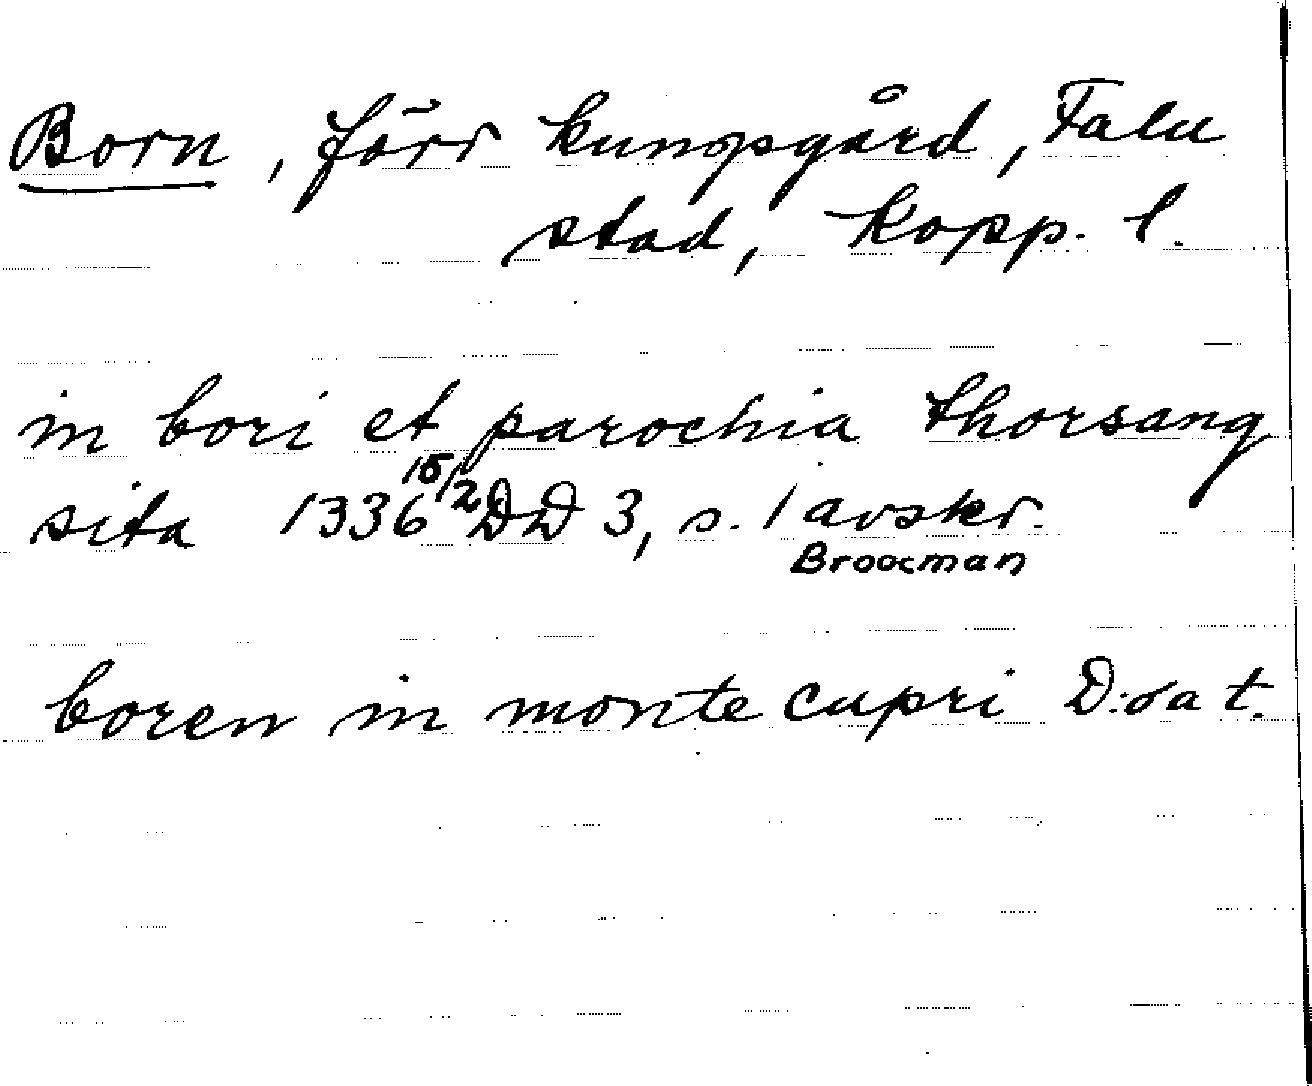 Born, förr kungsgård, Falu
stad, Kopp. l.
in bori et parochia thorsang
sita 1336 15/2 DD 3, s. 1 avskr.
Broocman
boren in monte cupri D:o a t.